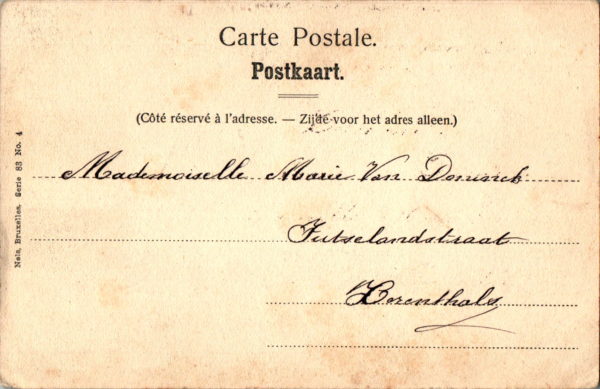 Carte Postale.
Postkaart.
(Côté réservé à l'adresse. — Zijde voor het adres alleen.)
Mademoiselle Marie Van
Herenthals
Nels, Bruxelles, Serie 83 No. 4